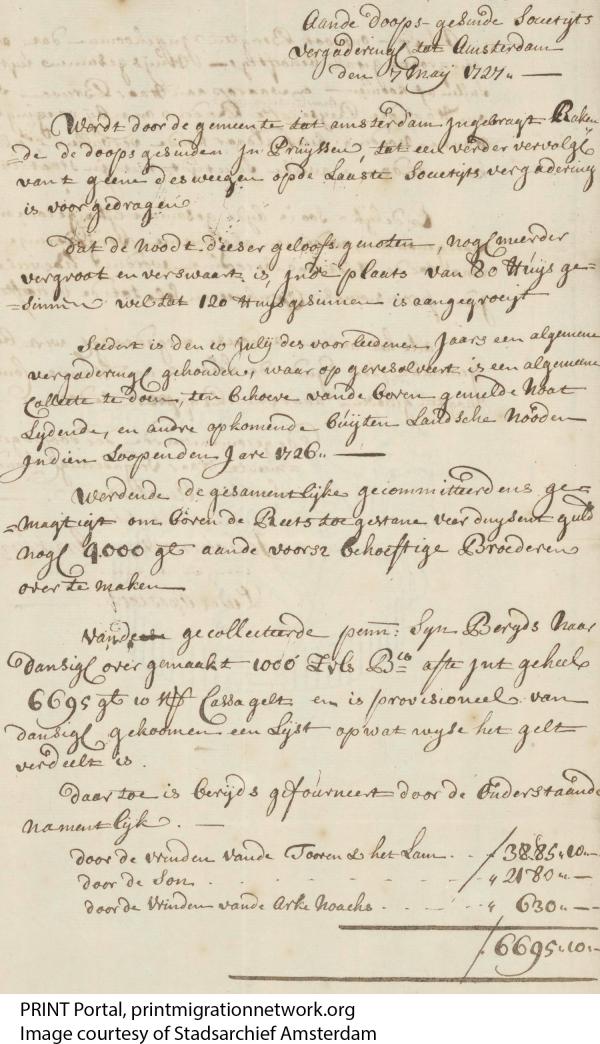 Aande doops-gesinde Societyts
vergadering tot Amsterdam
den 7 Maij 1727.. —
Wordt door de gemeente tot amsterdam Ingebragt Raken
=de de doops gesinden In Pruijssen, tot een verder vervolg
van t geene desweegen op de Laaste Societyts vergadering
is voorgedragen
dat de Noodt dieser geloofs genoten, nog meerder
vergroot en verswaart is, In de plaats van 80 Huijs ge=
=sinnen wel tot 120 Huijsgesinnen is aangegroeijt
Seedert is den 10 Julij des voorleedenen Jaars een algemene
vergadering gehouden, waar op geresolveert is een algemeene
Collecte te doen, ten behoeve vande boven gemelde Noot
Lydende, en andre opkomende buijten Landsche Nooden
Indien Loopenden Jare 1726.. —
Werdende de gesamentlijke gecommitteerdens ge=
=magtigt om boven de Reets toegestane vier duysent guld
nog 4000 gl aande voorsz behoeftige Broederen
over te maken
Vande gecollecteerde penn: Syn Beryds Naar
dansig over gemaakt 1000 Bco afte Int geheel
6695 gl 10 Cassa gelt en is provisioneel van
dansig gekoomen een Lyst op wat wyse het gelt
verdeelt is.
daar toe is beryds gefourneert door de onderstaande
namentlijk. —
door de vrinden vande Tooren & het Lam . . ƒ 3885.10.—
door de Son . . . . ƒ " 2180.. —
door de Vrinden vande Arke Noachs . . . " 630.. —
ƒ 6695.10.—
PRINT Portal, printmigrationnetwork.org
Image courtesy of Stadsarchief Amsterdam